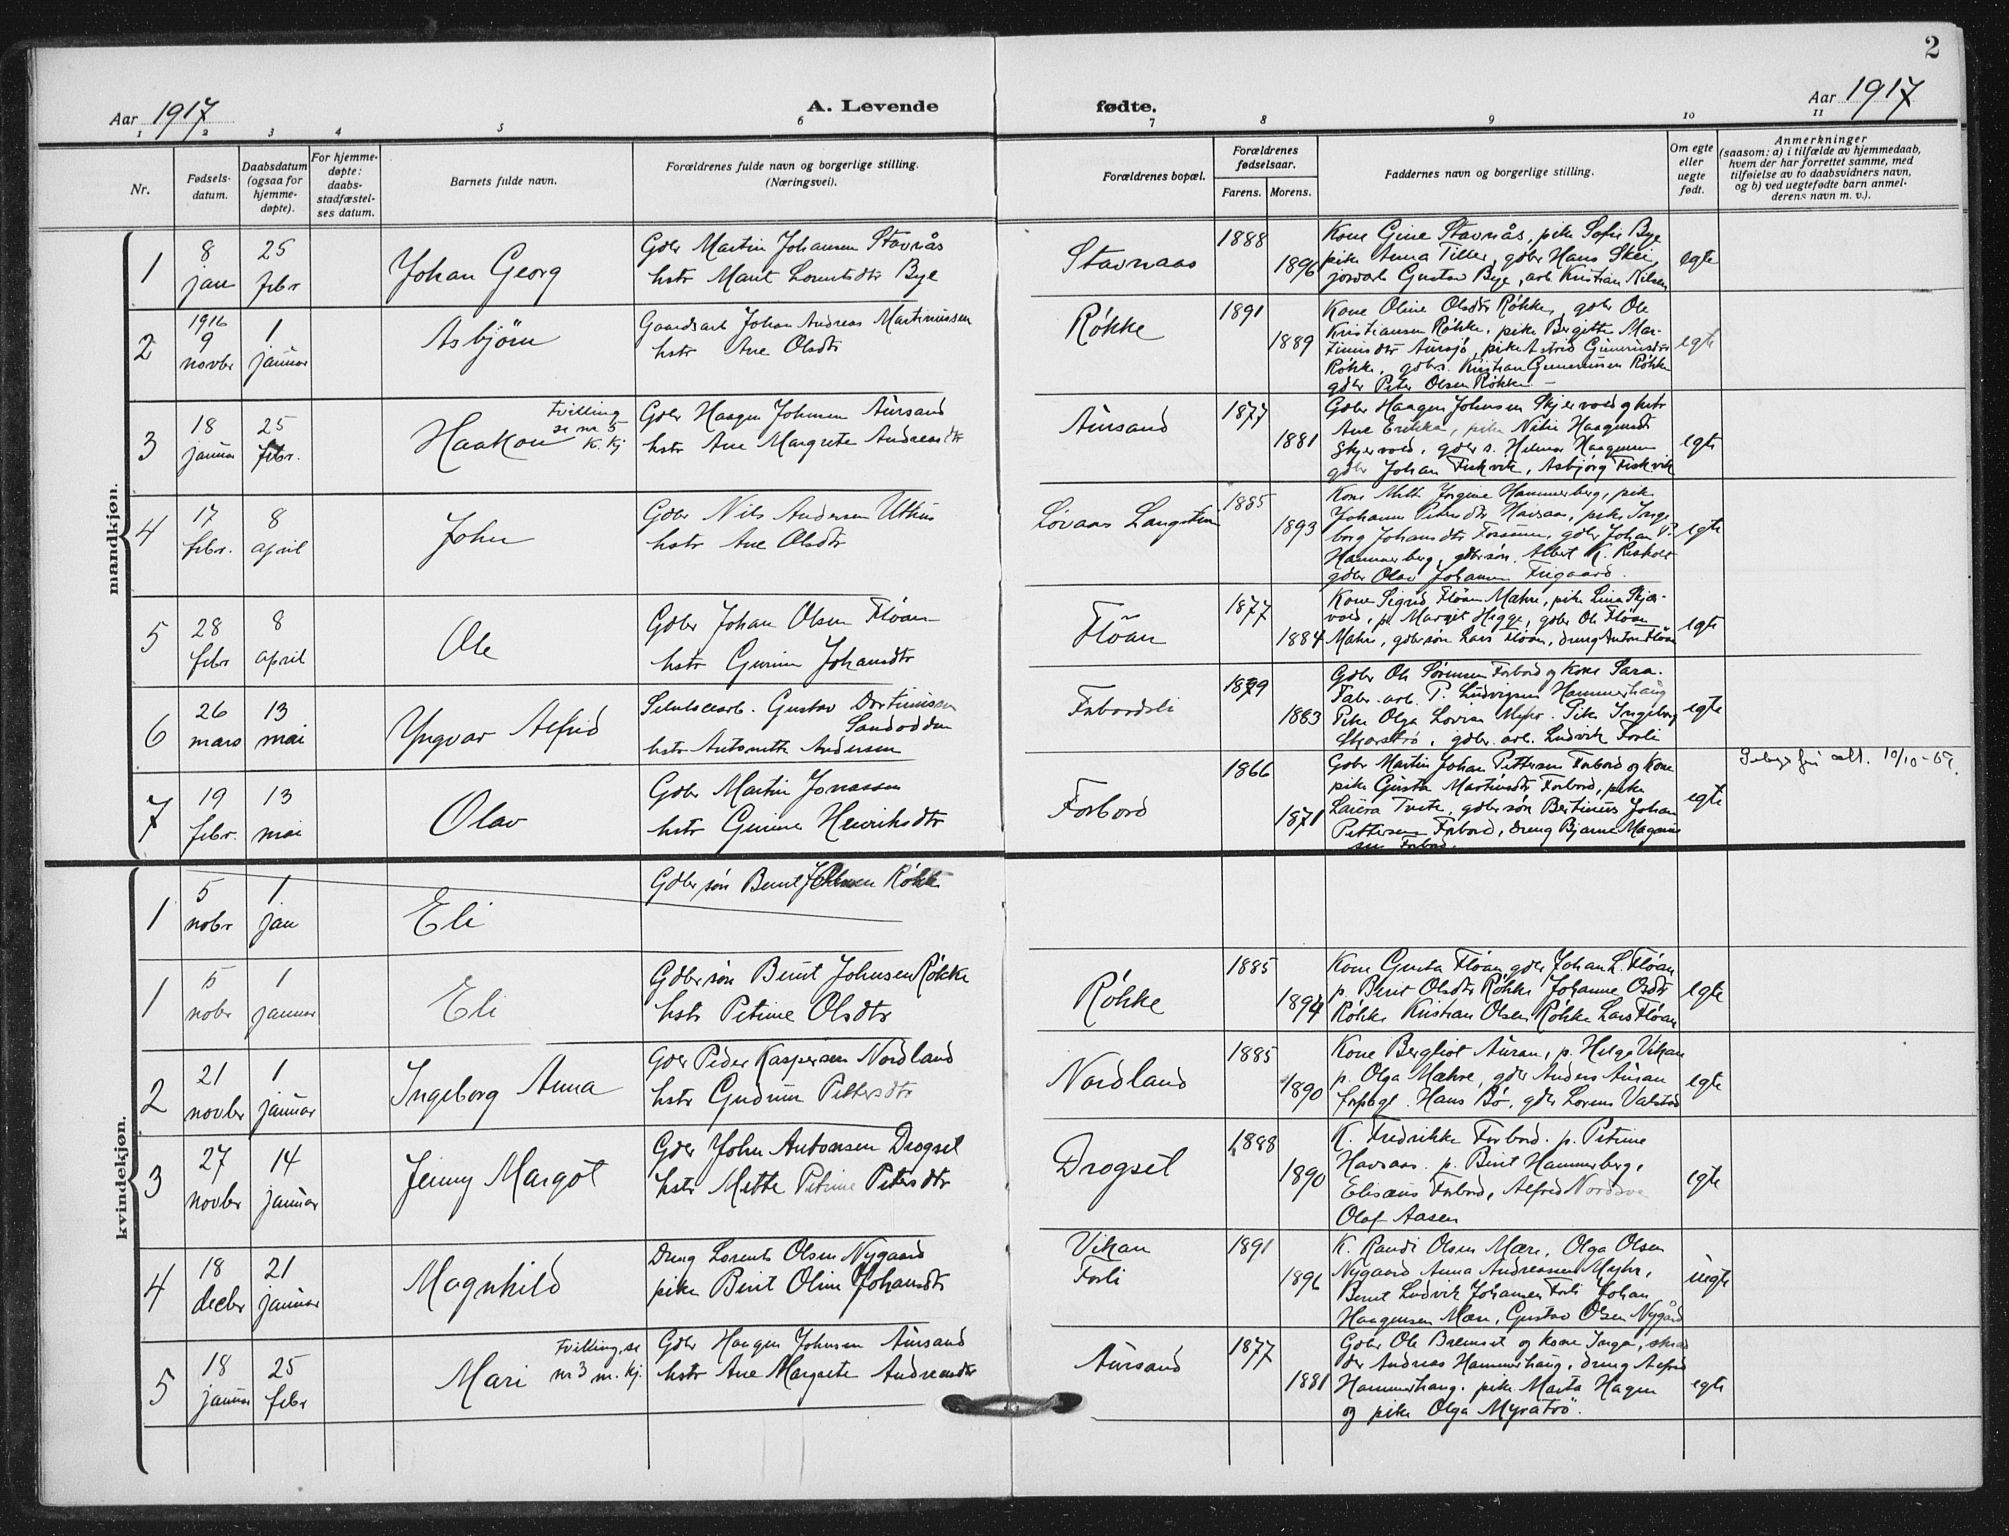 2
Aar 1917
A. Levende
fødte.
Aar 1917
1 2 3 4 5 6 7 8 9 10 11
Nr.
Fødsels-
datum.
Daabsdatum
(ogsaa for
hjemme-
døpte).
For hjemme-
døpte:
daabs-
stadfæstel-
ses datum.
Barnets fulde navn.
Forældrenes fulde navn og borgerlige stilling.
(Næringsvei).
Forældrenes bopæl.
Forældrenes
fødselsaar.
Farens. Morens.
Faddernes navn og borgerlige stilling.
Om egte
eller
uegte
født.
Anmerkninger
(saasom: a) i tilfælde av hjemmedaab,
hvem der har forrettet samme, med
tilføielse av to daabsvidners navn,
og b) ved uegtefødte barn anmel-
derens navn m. v.).
mandkjøn.
1
8 jan
25 febr
Johan Georg
Gdbr Martin Johansen Stavnås
hstr Marit Lorntsdtr Bye
Stavnaas
1888
1896
Kone Gine Stavnås, pike Sofie Bye
pike Anna Tiller, gdbr Hans Skei,
Gustav Bye, arb. Kristian Nilsen
egte
2
1916
9 novbr
1 januar
Asbjörn
Gaardsarb Johan Andreas Martinussen
hstr Ane Olsdtr
Røkke
1891
1889
Kone Oline Olsdtr Røkke, gdbr Ole
Kristiansen Røkke, pike Bergitte Mar-
tinusdtr Aunsjø, pike Astrid Gunerusdtr
Røkke, gdbrs. Kristian Gunerussen Røkke
gdbr Peter Olsen Røkke
egte
3
18 januar
25 febr.
Haakon
Tvilling
se nr 5
K. Kj
Gdbr Haagen Johnsen Aursand
hstr Ane Margrete Andreasdtr
Aursand
1877
1881
Gdbr Haagen Johnsen Skjervold og hstr
Ane Erikka, pike Haagensdtr
Skjervold, gdbr s. Helmer Haagensen
gdbr Johan Fiskvik, Asbjörg Fiskvik
egte
4
17 febr.
8 april
John
Gdbr Nils Andersen
hstr Ane Olsdtr
Lövaas Langstein
1885
1893
Kone Jörgine Hammerberg, pike
Johanna Petersdtr Havsaas, pike Inge-
borg Johansdtr Fossum, gdbr Johan P.
Hammerberg, gdbrsøn. Albert K.
gdbr Olav Johansen
egte
5
28 febr
8 april
Ole
Gdbr Johan Olsen Flöan
hstr Gurine Johansdtr
Flöan
1877
1884
Kone Sigrid Flöan Mæhre, pike Lina Skjer-
vold, p. Margit Hegge, gdbr Ole Flöan
Mæhre, gdbrsön Lars Flöan, dreng Anton Flöan
egte
6
26 mars
13 mai
Yngvar Alfred
Gustav
Sandodden
hstr Andersen
Forbordsli
1879
1883
Gdbr Ole Sörensen Forbord og Kone Sara.
Fabr. arb. P. Ludvigsen Hammerhaug
Pike Olga Lovise Myhr. Pike Ingeborg
gdbr. arb. Ludvik Forli
egte
7
19 febr.
13 mai
Olav
Gdbr Martin Jonassen
hstr Gurine Henriksdtr
Forbord
1866
1871
Gdbr Martin Johan Pettersen Forbord og Kone
pike Gusta Martinsdtr Forbord, pike
Laura Tvete, gdbr søn Bertinus Johan
Pettersen Forbord, dreng Bjarne Magnus-
sen Forbord.
egte
10/10-67.
kvindekjøn.
1
5 nobr
1 jan
Eli
Gdbr søn Bernt Johnsen Røkke
1
5 nobr
1 januar
Eli
Gdbr søn Bernt Johnsen Røkke
hstr Petrine Olsdtr
Røkke
1885
1894
Kone Gusta Flöan, gdbr Johan L. Flöan
p. Berit Olsdtr Røkke Johanne Olsdtr
Røkke Kristian Olsen Røkke Lars Flöan
egte
2
21 novbr
1 januar
Ingeborg Anna
Gdbr Peder Kaspersen Nordland
hstr Gudrun Pettersdtr
Nordland
1885
1890
Kone Bergliot Auran, p. Helga Vikan
p. Olga Mæhre, gdbr Anders Auran
forpbgl. Hans Bø, gdbr Lorens Valstad
egte
3
27 novbr
14 januar
Jenny Margot
Gdbr John Antonsen Drogset
hstr Mette Petrine Petersdtr
Drogset
1888
1890
K. Fredrikke Forbord. p. Petrine
Havsaas. p. Berit Hammerberg,
Elisæus Forbord, Alfred
Olaf Aasen
egte
4
18 decbr
21 januar
Magnhild
Dreng Lorents Olsen Nygaard
pike Berit Oline Johansdtr
Vikan
Forli
1891
1896
K. Randi Olsen Mære, Olga Olsen
Nygaard Anna Andreassen Myhr,
Bernt Ludvik Johansen Forli Johan
Haagensen Mære, Gustav Olsen Nygård
uegte
5
18 januar
25 febr
Mari
Tvilling, se
nr 3 m. kj.
Gdbr Haagen Johnsen Aursand
hstr Ane Margrete Andreasdtr
Aursand
1877
1881
Gdbr Ole Bremset og kone Inga, skræd-
der Andreas Hammerhaug, dreng Alfred
Hammerhaug. pike Marta Hagen
og pike Olga Myråtrö.
egte